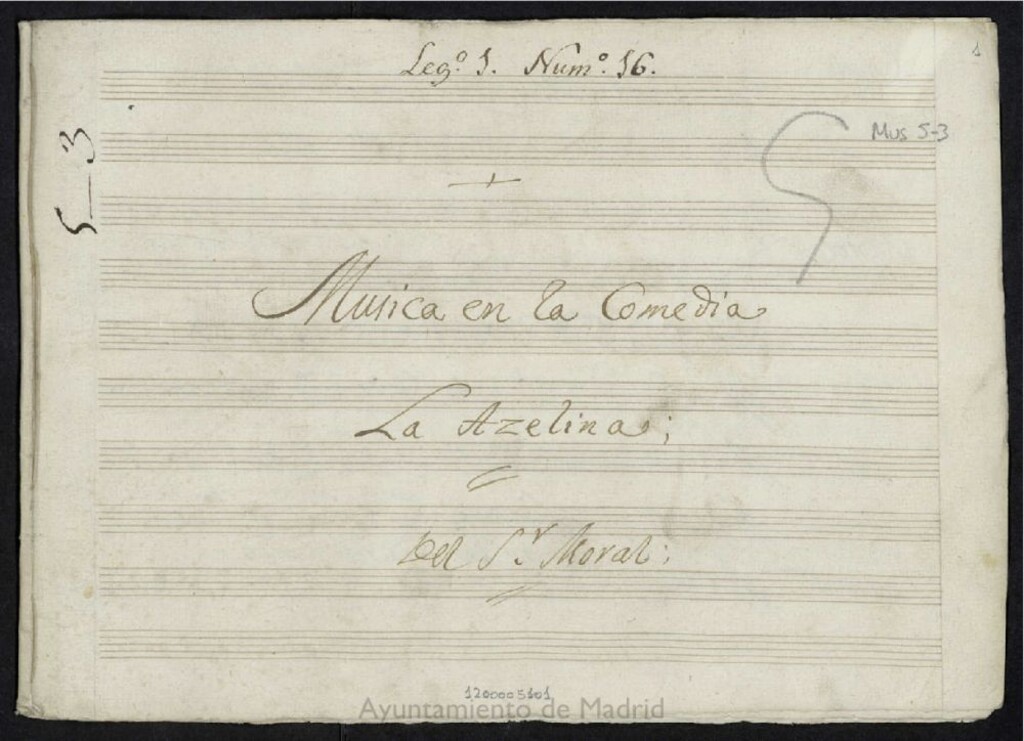 Leg.º 1. Num.º 16.
1
5-3
Mus 5-3
5
Musica en la Comedia
La Azelina;
Del S.r Moral;
1200005101
Ayuntamiento de Madrid